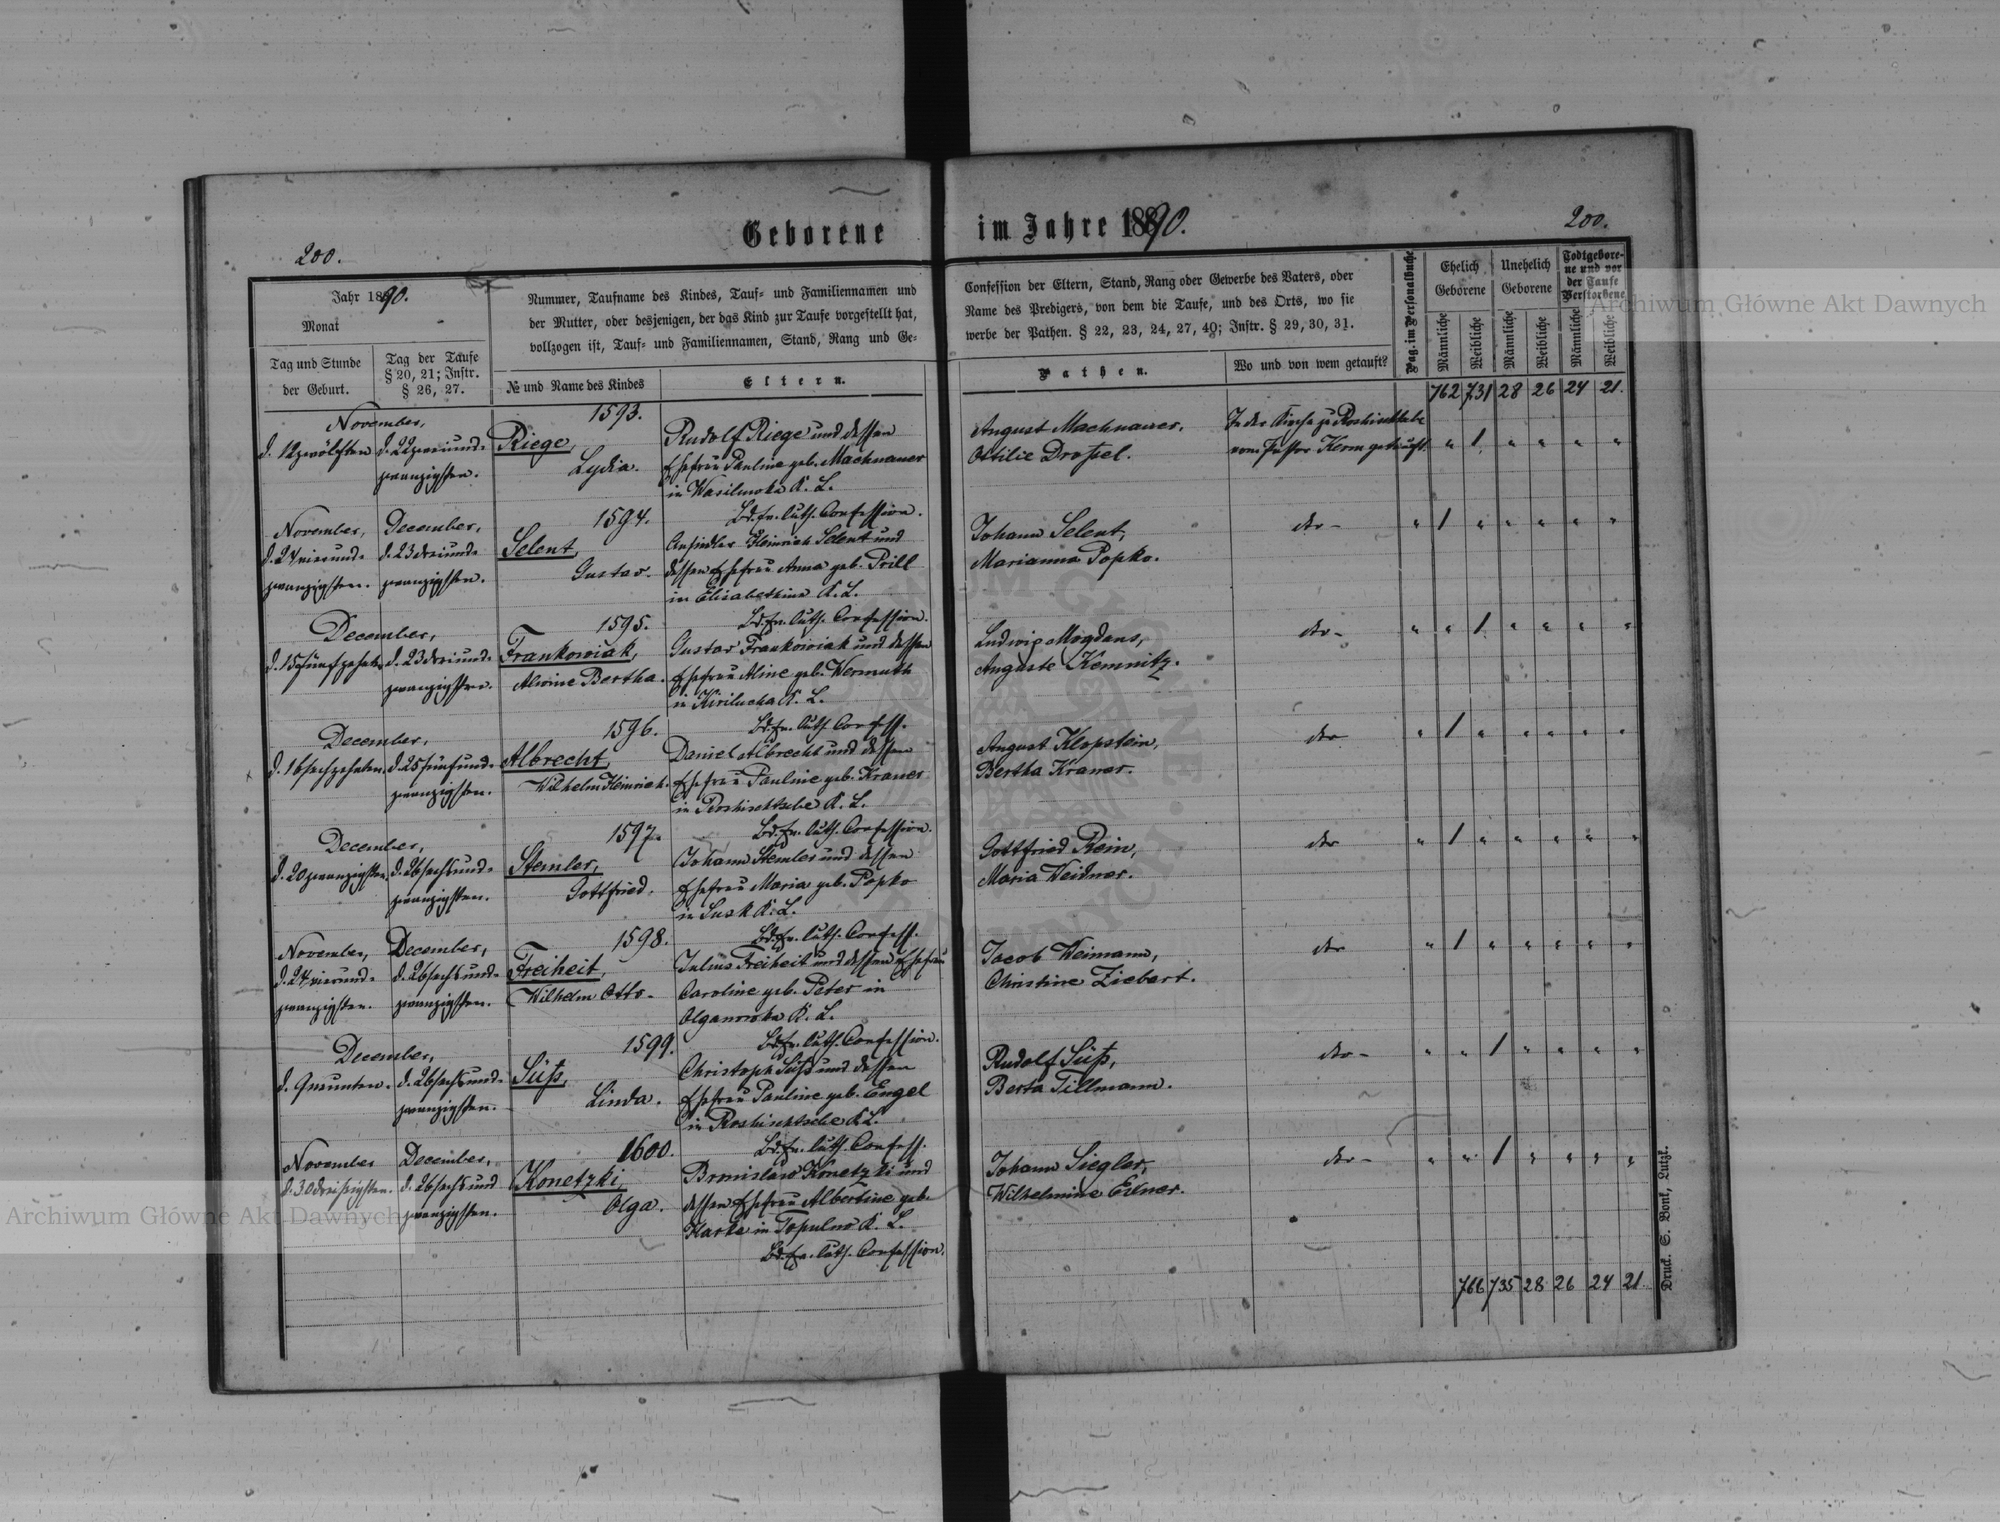 Geborene im Jahre 1890.
200.
200.
Jahr 1890.
Monat
Tag und Stunde
der Geburt.
Tag der Taufe
§ 20, 21; Instr.
§ 26, 27.
Nummer, Taufname des Kindes, Tauf- und Familiennamen und
der Mutter, oder desjenigen, der das Kind zur Taufe vorgestellt hat,
vollzogen ist, Tauf- und Familiennamen, Stand, Rang und Ge-
№ und Name des Kindes
Eltern.
Confession der Eltern, Stand, Rang oder Gewerbe des Vaters, oder
Name des Predigers, von dem die Taufe, und des Orts, wo sie
werbe der Pathen. § 22, 23, 24, 27, 40; Instr. § 29, 30, 31.
Pathen.
Wo und von wem getauft?
Pag. im Personalbuche
Ehelich
Geborene
Unehelich
Geborene
Todtgebore-
ne und vor
der Taufe
Verstorbene
Männliche
Weibliche
Männliche
Weibliche
Männliche
Weibliche
762 731 28 26 24 21.
November,
d. 12 zwölften
d. 22 zweiund-
zwanzigsten.
1593.
Riege,
Lydia.
Rudolf Riege und dessen
Ehefrau Pauline geb. Machnauer
in Wasilewka K. L.
Bd. ev. luth. Confession.
August Machnauer.
Ottilie Droßel.
In der Kirche zu Roshischtsche
vom Pastor Kerm getauft.
" 1 " " " "
November,
d. 24 vierund-
zwanzigsten.
December,
d. 23 dreiund-
zwanzigsten.
1594.
Selent,
Gustav.
Ansiedler Heinrich Selent und
dessen Ehefrau Anna geb. Prill
in Elisabethina K. L.
Bd. ev. luth. Confession.
Johann Selent,
Marianna Popko.
dto-
" 1 " " " " "
December,
d. 15 fünfzehnten
d. 23 dreiund-
zwanzigsten.
1595.
Frankowiak,
Alwine Bertha.
Gustav Frankowiak und dessen
Ehefrau Aline geb. Wermuth
in Kirilucha K. L.
Bd. ev. luth. Confess.
Ludwig Mogdans,
Auguste Kemnitz.
dto-
" " 1 " " " "
December,
d. 16 sechzehnten
d. 25 fünfund-
zwanzigsten.
1596.
Albrecht,
Wilhelm Heinrich.
Daniel Albrecht und dessen
Ehefrau Pauline geb. Kraner
in Roshischtsche K. L.
Bd. ev. luth. Confession.
August Klopstein,
Bertha Kraner.
dto
" 1 " " " " "
December,
d. 20 zwanzigsten.
d. 26 sechsund-
zwanzigsten.
1597.
Stemler,
Gottfried.
Johann Stemler und dessen
Ehefrau Maria geb. Popko
in Susk K. L.
Bd. ev. luth. Confess.
Gottfried Rein,
Maria Weidner.
dto
" 1 " " " " "
November,
d. 24 vierund-
zwanzigsten.
December,
d. 26 sechsund-
zwanzigsten.
1598.
Freiheit,
Wilhelm Otto-
Julius Freiheit und dessen Ehefrau
Caroline geb. Peter in
Olganowka K. L.
Bd. ev. luth. Confession.
Jacob Weimann,
Christine Ziebart.
dto
" 1 " " " " "
December,
d. 9 neunten.
d. 26 sechsund-
zwanzigsten.
1599.
Süß,
Linda.
Christoph Süß und dessen
Ehefrau Pauline geb. Engel
in Roshischtsche K. L.
Bd. ev. luth. Confess.
Rudolf Süß,
Berta Tillmann.
dto-
" " 1 " " " "
November
d. 30 dreißigsten.
December,
d. 26 sechsund
zwanzigsten.
1600.
Konetzki,
Olga.
Bronislaw Konetzki und
dessen Ehefrau Albertine geb.
Harke in Topulno K. L.
Bd. ev. luth. Confession.
Johann Siegler,
Wilhelmine Exner.
dto-
" " 1 " " " "
766 735 28 26 24 21
Druck. S. Bonk, Lutzk.
Archiwum Główne Akt Dawnych
Archiwum Główne Akt Dawnych